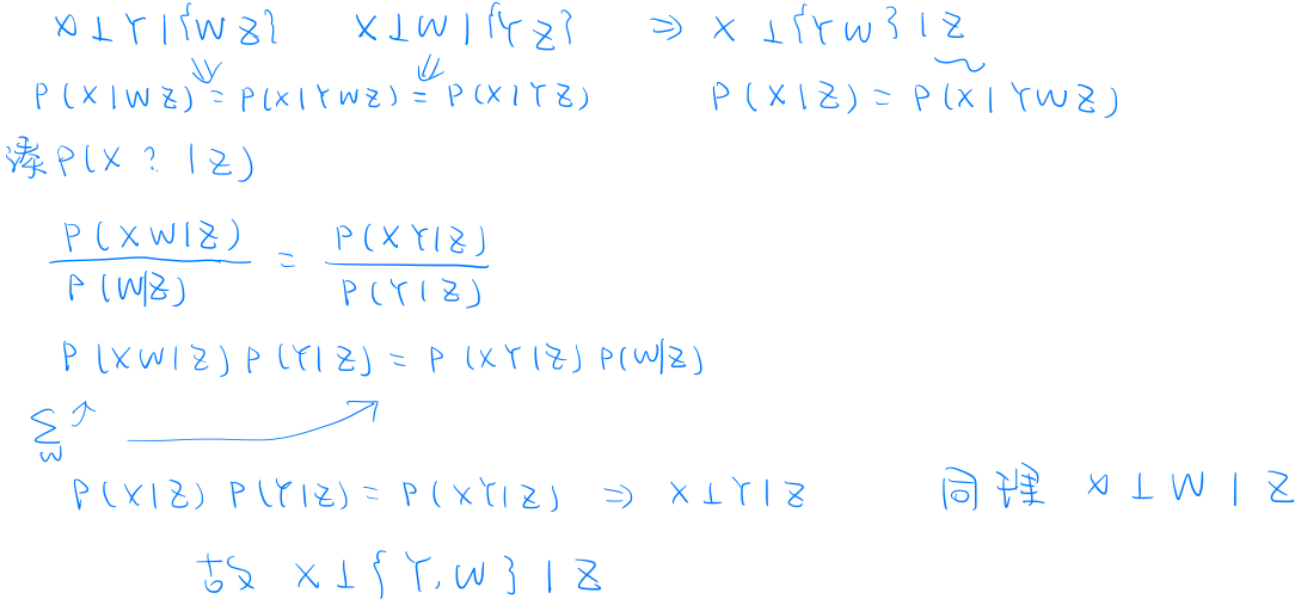 X⊥Y|{WZ} X⊥W|{YZ} ⇒ X⊥{YW}|Z
P(X|WZ) = P(X|YWZ) = P(X|YZ) P(X|Z) = P(X|YWZ)
凑 P(X ? |Z)
P(XW|Z)/P(W|Z) = P(XY|Z)/P(Y|Z)
P(XW|Z)P(Y|Z) = P(XY|Z)P(W|Z)
∑_W
P(X|Z)P(Y|Z) = P(XY|Z) ⇒ X⊥Y|Z 同理 X⊥W|Z
故 X⊥{Y,W}|Z